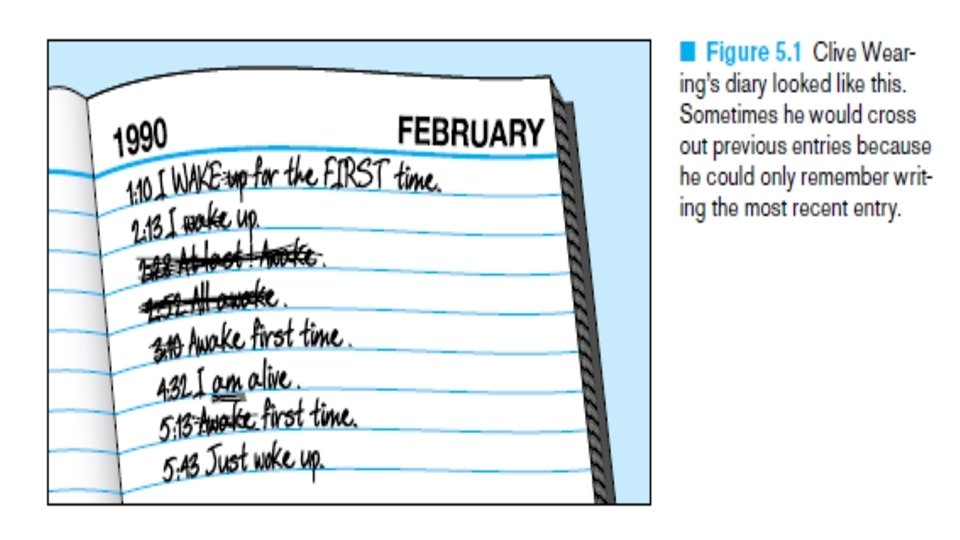 1990
FEBRUARY
1:10 I WAKE up for the FIRST time.
2:13 I wake up.
2:28 At last! Awake.
2:52 All awake.
3:10 Awake first time.
4:32 I am alive.
5:13 Awake first time.
5:43 Just woke up.
■ Figure 5.1 Clive Wear-
ing's diary looked like this.
Sometimes he would cross
out previous entries because
he could only remember writ-
ing the most recent entry.